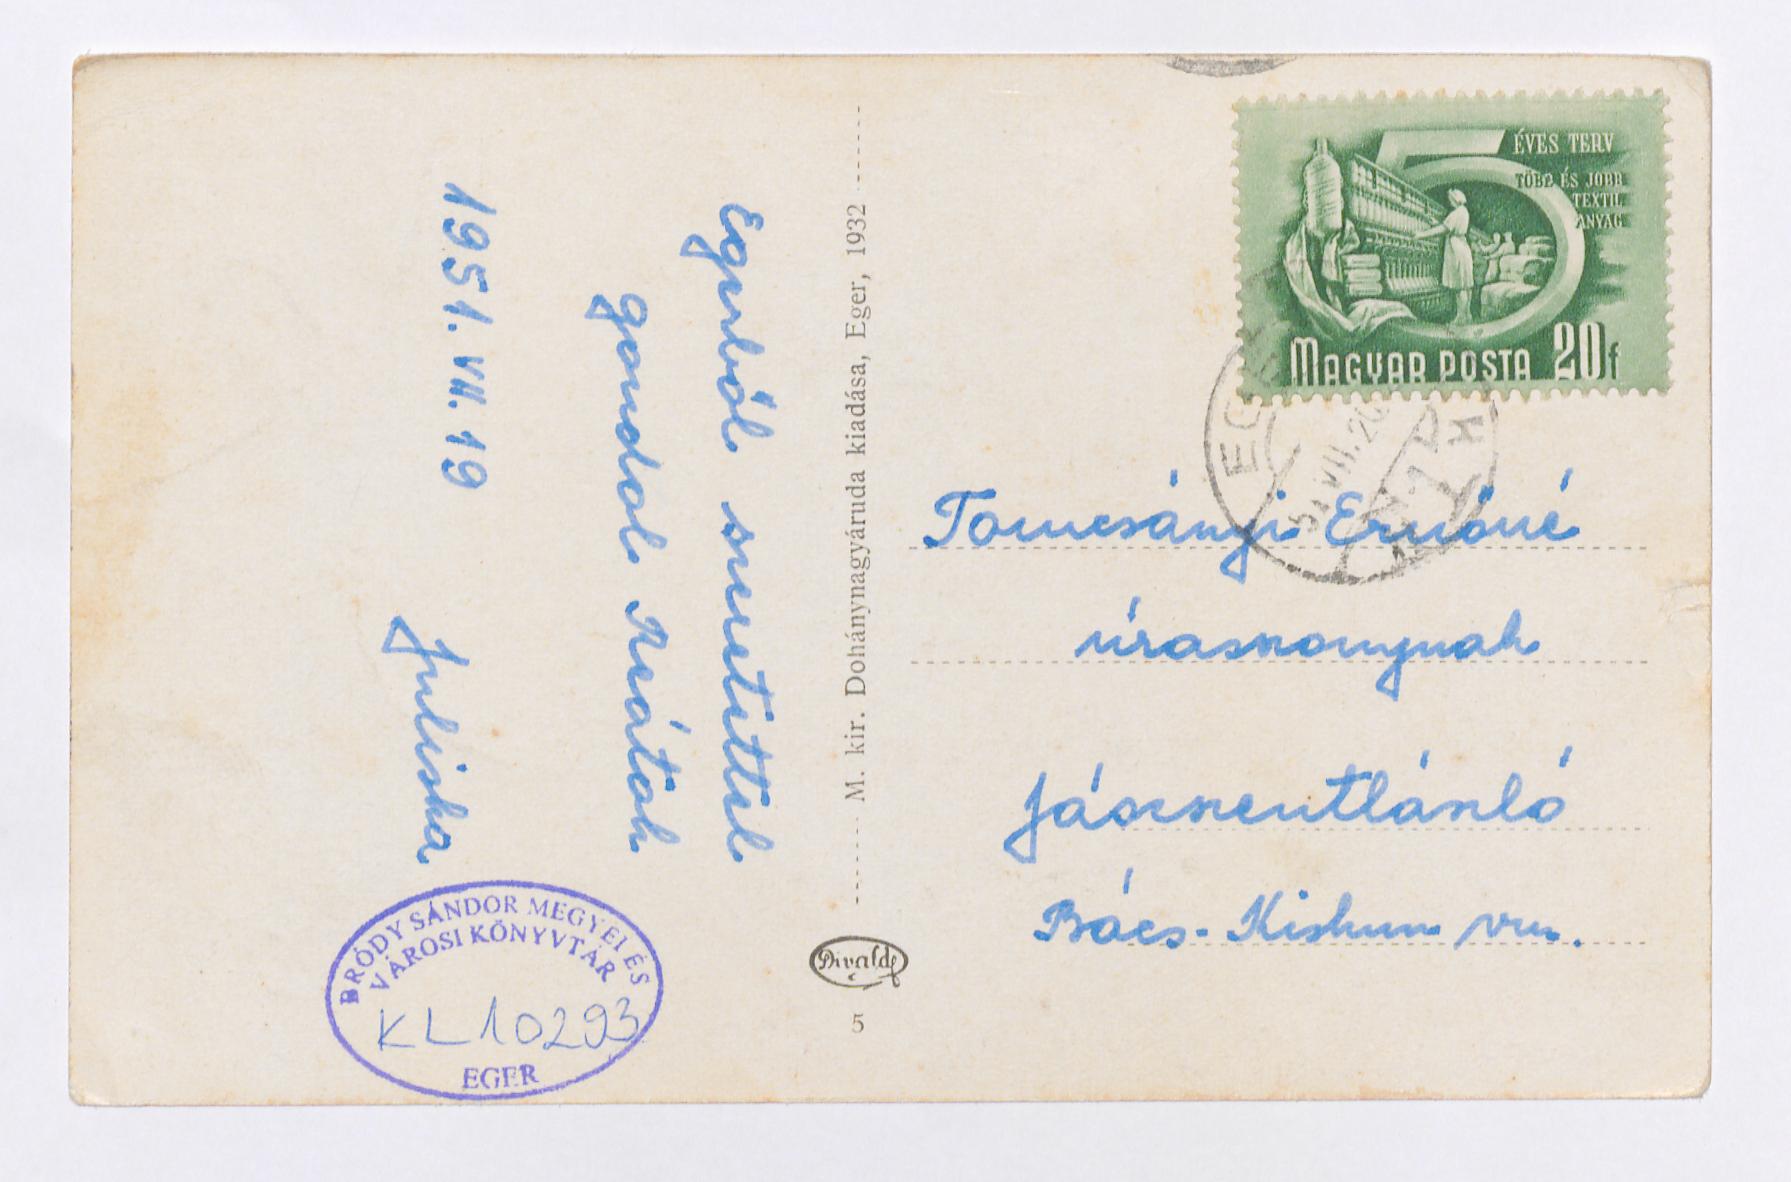 Egerből szeretettel
gondol Reátok
Juliska
1951. VII. 19
M. kir. Dohánynagyáruda kiadása, Eger, 1932
Divald
5
ÉVES TERV
TÖBB ÉS JOBB
TEXTIL
ANYAG
MAGYAR POSTA 20f
EGER
51 VII. 20
Tomcsányi Ernőné
úrasszonynak
Jászszentlászló
Bács-Kiskun vm.
BRÓDY SÁNDOR MEGYEI ÉS
VÁROSI KÖNYVTÁR
KL 10293
EGER